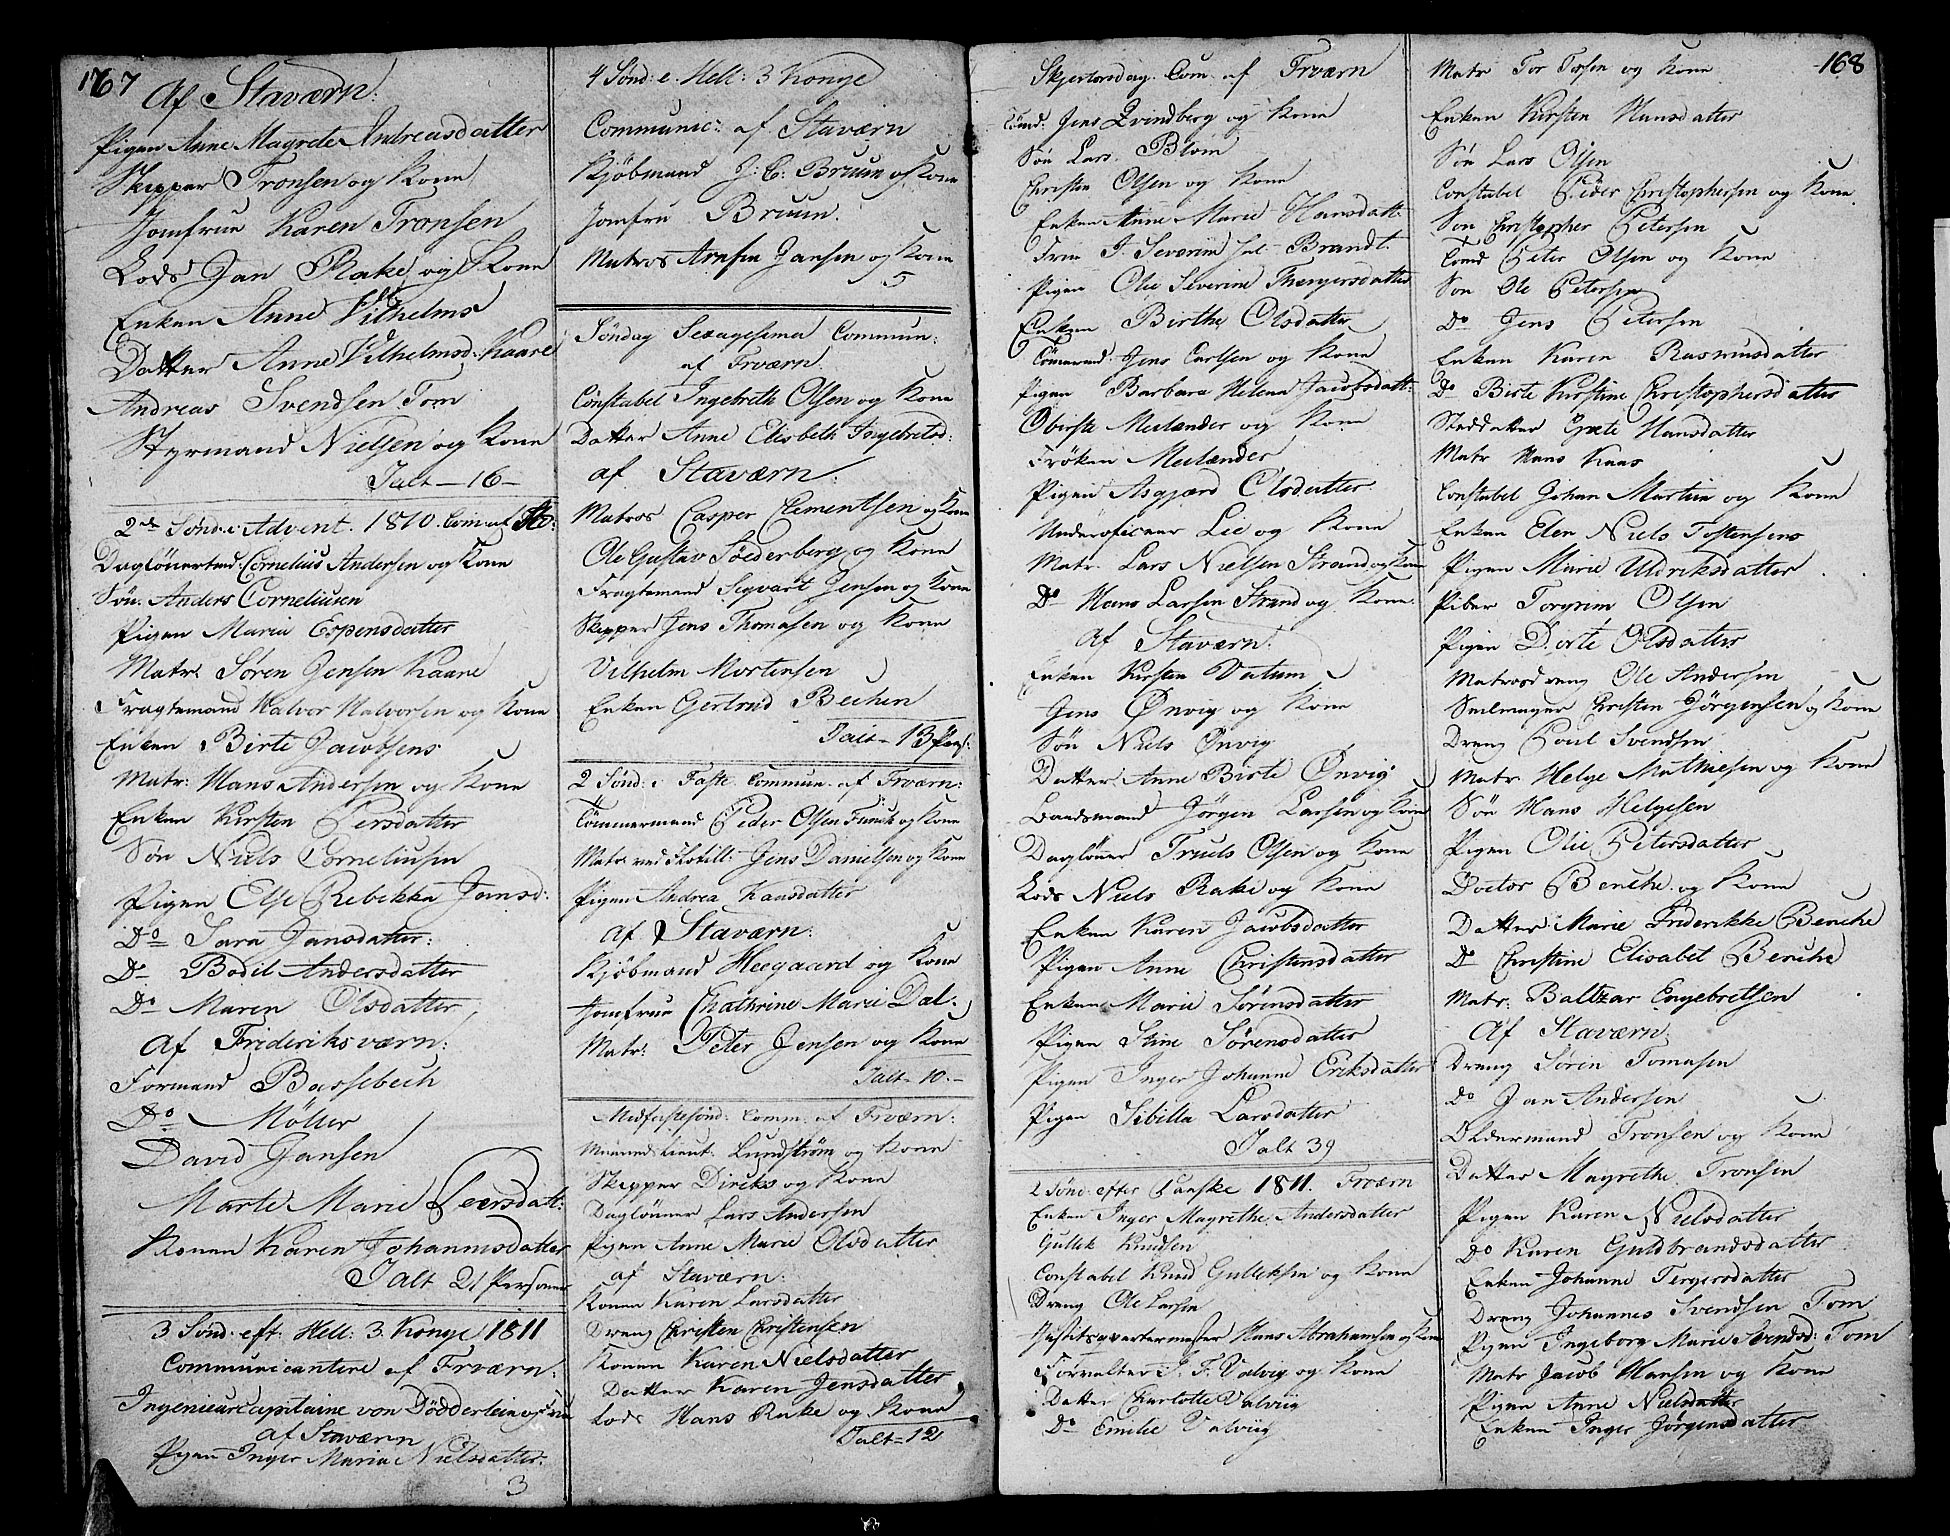 167
Af Staværn:
Pigen Anne Magrete Andreasdatter
Skipper Tronsen og Kone
Jomfrue Karen Tronsen
Lods Jan Rake og Kone
Enken Anne Vilhelms
Datter Anne Vilhelmsd: Kaare
Andreas Svendsen Tom
Styrmand Nielsen og Kone
Ialt - 16 -
2den Sønd: i Advent. 1810. Com: af Sta:
Cornelius Andersen og Kone
Søn. Anders Corneliusen
Pigen Maria Espensdatter
Matr: Søren Jensen Kaare
Fragtemand Halvor Halvorsen og Kone
Enken Birte Jacobsens
Matr: Hans Andersen og Kone
Enken Kirsten Persdatter
Søn Niels Corneliusen
Pigen Else Rebekka Jansd:
Do Sara Jansdatter:
Do Bodil Andersdatter
Do Maren Olsdatter,
Af Frideriksværn:
Formand Bassebech
Do Möller
David Jansen
Marte Marie Peersdat:
Konen Karen Johannisdatter
Ialt 21 Personer
3 Sønd: eft: Hell: 3 Konge 1811
Communicantere af Frværn:
Ingenieurcapitaine von Dödderlein og Frue
af Staværn
Pigen Inger Maria Nielsdatter.
3
4 Sønd: e. Hell: 3 Konge
Communic: af Staværn
Kjöbmand J: C: Bruun og Kone
Jomfru Bruun.
Matros Arnsen Jansen og Kone
5
Søndag Sexagesima Commun:
af Frværn:
Constabel Ingebreth Olsen og Kone
Datter Anne Elisbeth Ingebretsd:
af Staværn:
Matros Casper Clementsen og Kone
Ole Gustav Söderberg og Kone
Fragtemand Segvart Jensen og Kone
Skipper Jens Thomasen og Kone
Vilhelm Mortensen
Enken Gertrud Bechen
Ialt - 13 Pers:
2 Sønd: i Faste Commun. af Frværn:
Tömmermand Peder Olsen Funk og Kone
Matr: ved Flotill: Jens Danielsen og Kone
Pigen Andrea Hansdatter
Af Staværn:
Kjöbmand Heegaard og Kone
Jomfrue Chathrine Marie Dal.
Matr: Peter Jensen og Kone
Ialt - 10. -
Midfastesönd: Comm: af Frværn:
Lieut. Lundstrøm og Kone
Skipper Diriks og Kone
Daglönner Lars Andersen
Pigen Anne Marie Olsdatter
af Staværn:
Konen Karen Larsdatter
Dreng Christen Christensen
Konen Karen Nielsdatter
Datter Karen Jensdatter
Lods Hans Rake og Kone
Ialt - 12
Skjertorsdag. Com. af Frværn
Tömd: Jens Qvindberg og Kone
Søn Lars Blom
Christen Olsen og Kone
Enken Anne Marie Hansdatt:
J. Severine Sal. Brandt.
Pigen Olie Severine Thergersdatter
Enken Birthe Olsdatter
Tömmermd: Jens Carlsen og Kone
Pigen Barbara Helena Jacobsdatt:
Obirste Meilænder og Kone
Fröken Meilænder
Pigen Asgjærd Olsdatter
Underoficeer Lie og Kone
Matr. Lars Nielsen Strand og Kone
Do Hans Larsen Strand og Kone
Af Staværn:
Enken Kirsten Vatum
Jens Önvig og Kone
Søn Niels Önvig
Datter Anne Birte Önvig
Baadsmand Jörgen Larsen og Kone
Daglöner Truels Olsen og Kone
Lods Niels Rake og Kone
Enken Karen Jacobsdatter
Pigen Anne Christensdatter
Enken Marie Sörensdatter
Pigen Stine Sörensdatter
Pigen Inger Johanne Eriksdatter
Pigen Sibilla Larsdatter
Ialt 39
2 Sönd: efter Paaske 1811. Frværn
Enken Inger Magrethe Andersdatter
Gullek Knudsen
Constabel Knud Gulleksen og Kone
Dreng Ole Larsen
Hans Abrahamsen og Kone
Forvalter J. F. Valvig og Kone
Datter Charlotte Valviig
Do Emelie Valviig
168
Matr Tor Torsen og Kone
Enken Kirsten Hansdatter
Søn Lars Olsen
Constabel Peder Christophersen og Kone
Søn Christopher Petersen
Tömd Peter Olsen og Kone
Søn Ole Petersen
Do Jens Petersen
Enken Karen Rasmusdatter
Do Birte Kirstine Christophersdatter
Steddatter Grete Hansdatter
Matr Hans Kaas
Constabel Johan Martin og Kone
Enken Elen Niels Tostensens
Pigen Marie Uldriksdatter
Piber Torgrim Olsen
Pigen Dorte Olsdatter
Matrosdreng Ole Andersen
Seilmager Christen Jörgensen og Kone
Dreng Poul Svendsen
Matr Helge Mathiesen og Kone
Søn Hans Helgesen
Pigen Olie Petersdatter
Doctor Benche og Kone
Datter Marie Friderikke Benche
Do Christine Elisabet Benche
Matr: Baltzar Engebretsen
Af Staværn
Dreng Sören Tomasen
Do Jan Andersen
Oldermand Tronsen og Kone
Datter Magrethe Tronsen
Pigen Karen Nielsdatter
Do Karen Guldbrandsdatter
Enken Johanne Tergersdatter
Dreng Johannes Svendsen Tom
Pigen Ingeborg Marie Svendsd: Tom
Matr Jacob Hansen og Kone
Pigen Anne Nielsdatter
Enken Inger Jörgensdatter